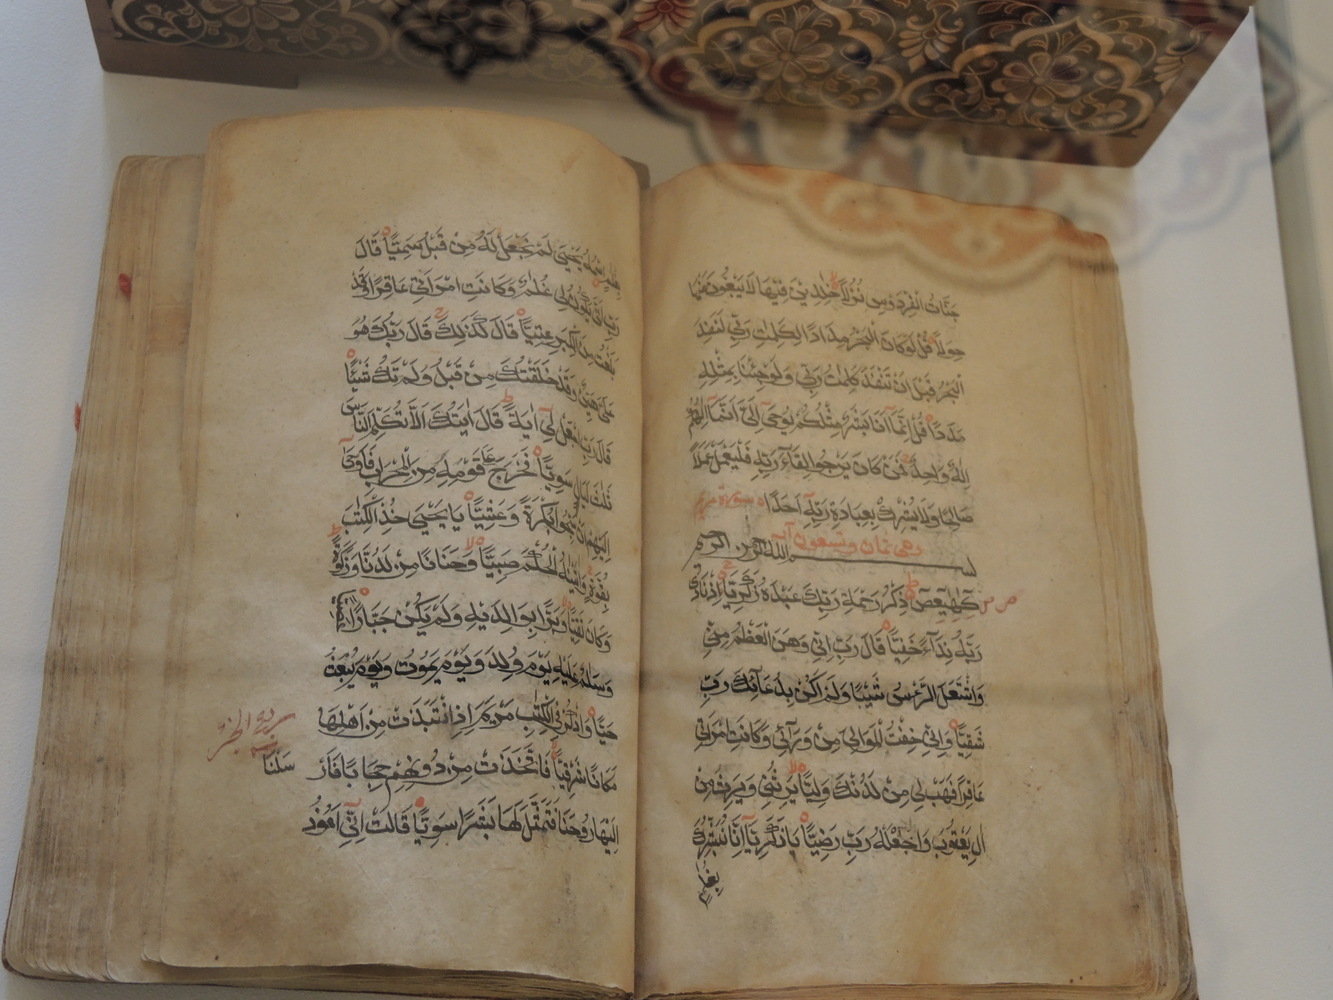 جَنَّاتُ الْفِرْدَوْسِ نُزُلًا خٰلِدِينَ فِيهَا لَا يَبْغُونَ عَنْهَا
حِوَلًا قُلْ لَوْ كَانَ الْبَحْرُ مِدَادًا لِكَلِمٰتِ رَبِّي لَنَفِدَ
الْبَحْرُ قَبْلَ اَنْ تَنْفَدَ كَلِمٰتُ رَبِّي وَلَوْ جِئْنَا بِمِثْلِهِ
مَدَدًا قُلْ اِنَّمَا اَنَا بَشَرٌ مِثْلُكُمْ يُوحٰى اِلَيَّ اَنَّمَا اِلٰهُكُمْ
اِلٰهٌ وَاحِدٌ فَمَنْ كَانَ يَرْجُوا لِقَآءَ رَبِّهِ فَلْيَعْمَلْ عَمَلًا
صَالِحًا وَلَا يُشْرِكْ بِعِبَادَةِ رَبِّهِ اَحَدًا سورة مريم
وهي ثمان وتسعون آية
بسم الله الرحمن الرحيم
كٓهٰيٰعٓصٓ ذِكْرُ رَحْمَةِ رَبِّكَ عَبْدَهُ زَكَرِيَّا اِذْ نَادٰى
رَبَّهُ نِدَآءً خَفِيًّا قَالَ رَبِّ اِنِّي وَهَنَ الْعَظْمُ مِنِّي
وَاشْتَعَلَ الرَّأْسُ شَيْبًا وَلَمْ اَكُنْ بِدُعَآئِكَ رَبِّ
شَقِيًّا وَاِنِّي خِفْتُ الْمَوَالِيَ مِنْ وَرَآئِي وَكَانَتِ امْرَاَتِي
عَاقِرًا فَهَبْ لِي مِنْ لَدُنْكَ وَلِيًّا يَرِثُنِي وَيَرِثُ مِنْ
اٰلِ يَعْقُوبَ وَاجْعَلْهُ رَبِّ رَضِيًّا يَا زَكَرِيَّا اِنَّا نُبَشِّرُكَ
بِغُلٰمٍ
بِغُلٰمٍ اسْمُهُ يَحْيٰى لَمْ نَجْعَلْ لَهُ مِنْ قَبْلُ سَمِيًّا قَالَ
رَبِّ اَنّٰى يَكُونُ لِي غُلٰمٌ وَكَانَتِ امْرَاَتِي عَاقِرًا وَقَدْ
بَلَغْتُ مِنَ الْكِبَرِ عِتِيًّا قَالَ كَذٰلِكَ قَالَ رَبُّكَ هُوَ
عَلَيَّ هَيِّنٌ وَقَدْ خَلَقْتُكَ مِنْ قَبْلُ وَلَمْ تَكُ شَيْئًا
قَالَ رَبِّ اجْعَلْ لِي اٰيَةً قَالَ اٰيَتُكَ اَلَّا تُكَلِّمَ النَّاسَ
ثَلٰثَ لَيَالٍ سَوِيًّا فَخَرَجَ عَلٰى قَوْمِهِ مِنَ الْمِحْرَابِ فَاَوْحٰى
اِلَيْهِمْ اَنْ سَبِّحُوا بُكْرَةً وَعَشِيًّا يَا يَحْيٰى خُذِ الْكِتٰبَ
بِقُوَّةٍ وَاٰتَيْنٰهُ الْحُكْمَ صَبِيًّا وَحَنَانًا مِنْ لَدُنَّا وَزَكٰوةً
وَكَانَ تَقِيًّا وَبَرًّا بِوَالِدَيْهِ وَلَمْ يَكُنْ جَبَّارًا
وَسَلٰمٌ عَلَيْهِ يَوْمَ وُلِدَ وَيَوْمَ يَمُوتُ وَيَوْمَ يُبْعَثُ
حَيًّا وَاذْكُرْ فِي الْكِتٰبِ مَرْيَمَ اِذِ انْتَبَذَتْ مِنْ اَهْلِهَا
مَكَانًا شَرْقِيًّا فَاتَّخَذَتْ مِنْ دُونِهِمْ حِجَابًا فَاَرْ
سَلْنَا
اِلَيْهَا رُوحَنَا فَتَمَثَّلَ لَهَا بَشَرًا سَوِيًّا قَالَتْ اِنِّي اَعُوذُ